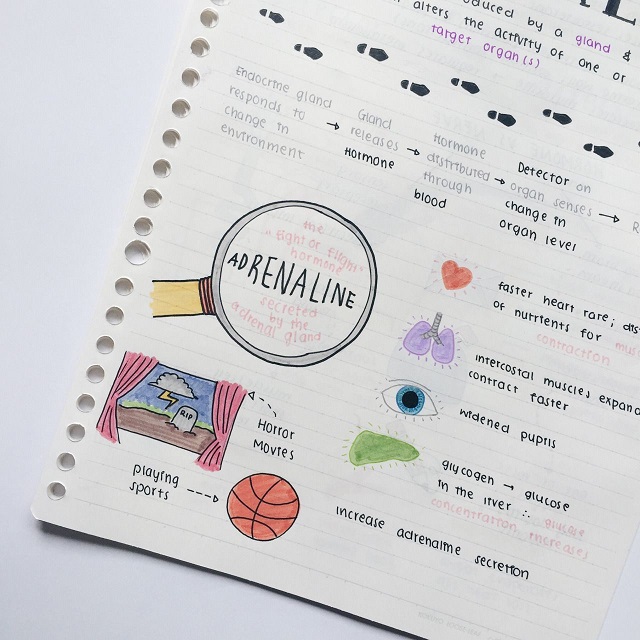 oduced by a gland &
alters the activity of one or
target organ(s)
Endocrine gland
responds to
change in
environment
Gland
releases
Hormone
Hormone
distributed
through
blood
Detector on
organ senses
change in
organ level
the
"fight or flight"
hormone
ADRENALINE
secreted
by the
adrenal gland
faster heart rare; dis
of nutrients for
contraction
intercostal muscles expand
contract faster
widened pupils
glycogen → glucose
in the liver ∴ glucose
concentration increases
Horror
Movies
playing
sports
increase adrenaline secretion